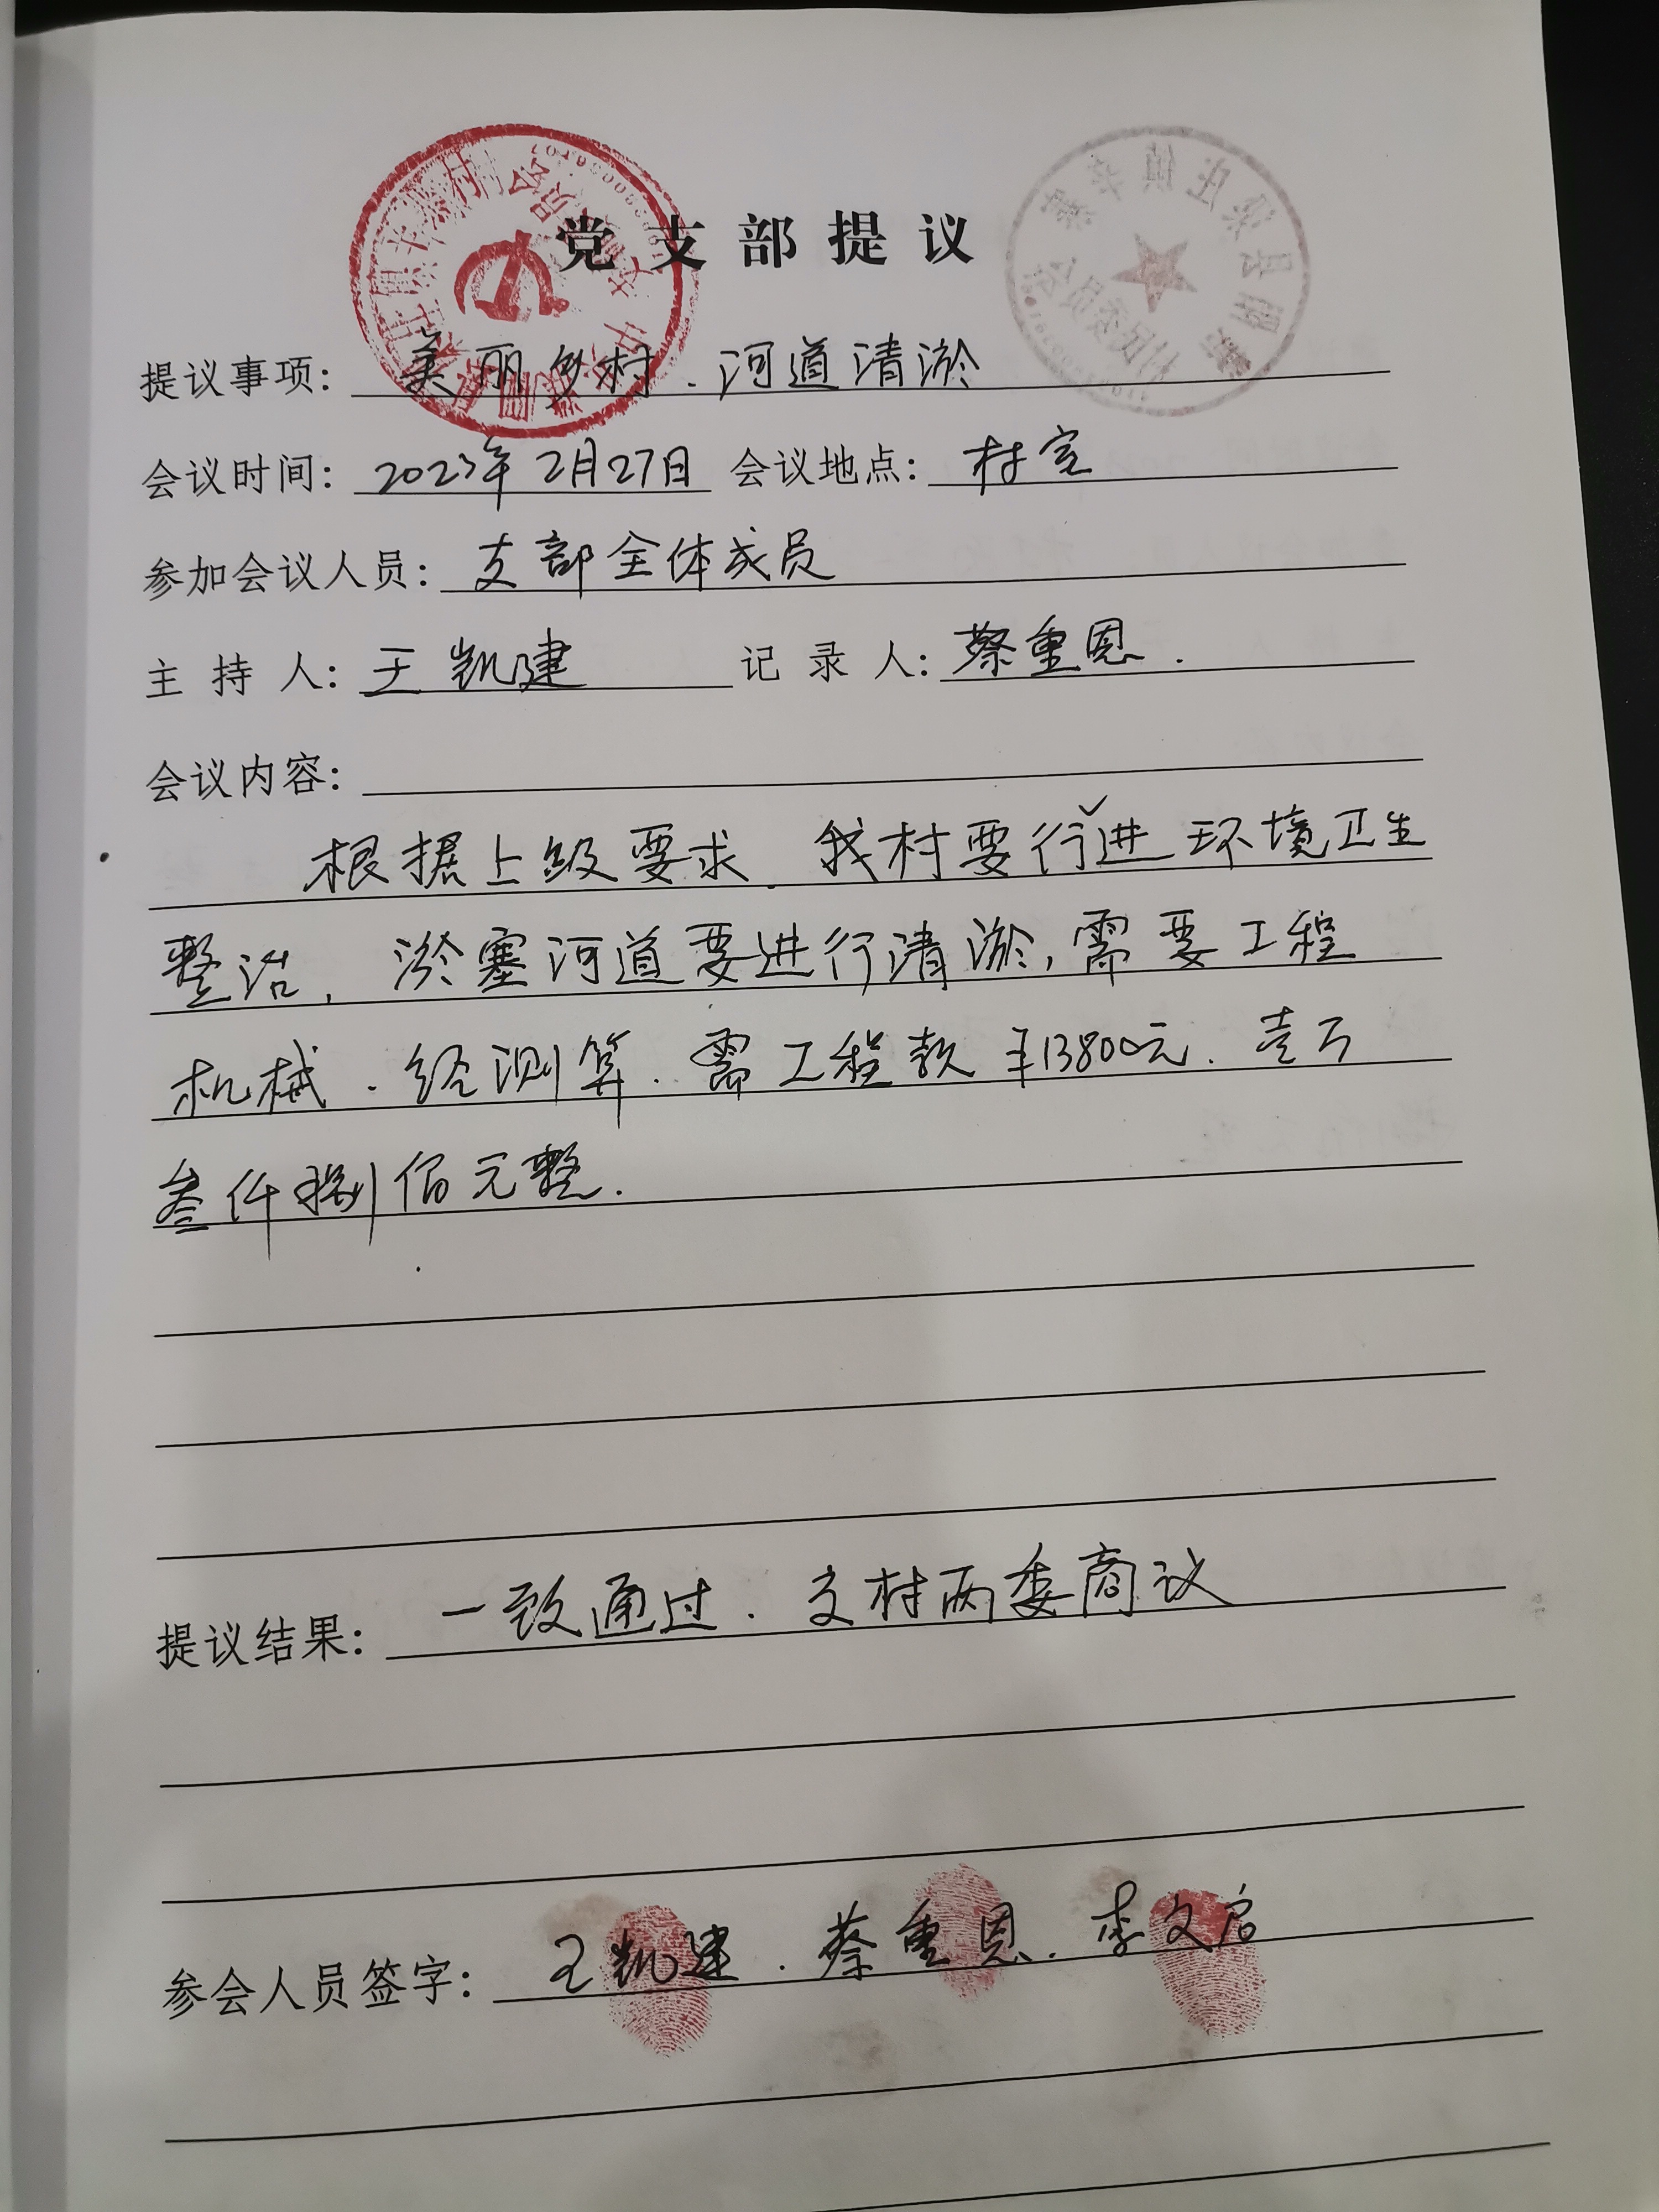 党支部提议
提议事项: 美丽乡村.河道清淤
会议时间: 2023年2月27日 会议地点: 村室
参加会议人员: 支部全体成员
主持人: 王凯建 记录人: 蔡重恩.
会议内容:
根据上级要求.我村要行进环境卫生
整治,淤塞河道要进行清淤,需要工程
机械.经测算.需工程款¥13800元.壹万
叁仟捌佰元整.
提议结果: 一致通过.交村两委商议
参会人员签字: 王凯建.蔡重恩.李文启